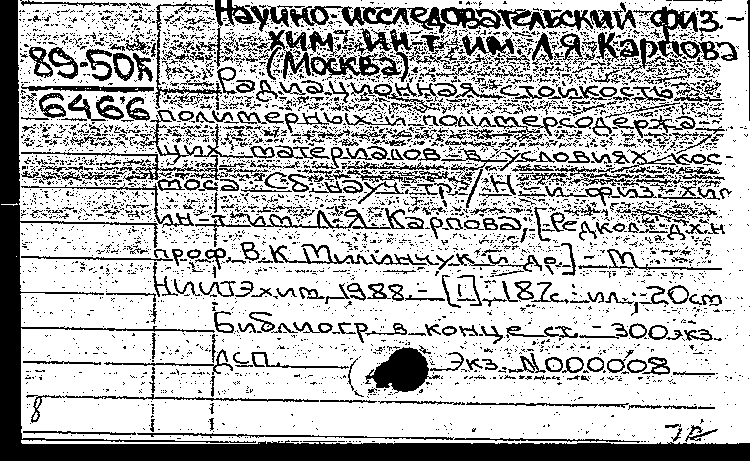 Научно-исследовательский физ.-
хим. ин-т им. Л.Я. Карпова
(Москва).
89-50к
6466
Радиационная стойкость
полимерных и полимерсодержа-
щих материалов в условиях кос-
моса. Сб. науч. тр. / Н.-и. физ.-хим.
ин-т им. Л.Я. Карпова; [Редкол.: д.х.н.
проф. В.К. Милинчук и др.] - М.
НИИТЭхим, 1988. - [1], 187 с.: ил.; 20 см
Библиогр. в конце ст. - 300 экз.
ДСП. Экз. N 000008
8